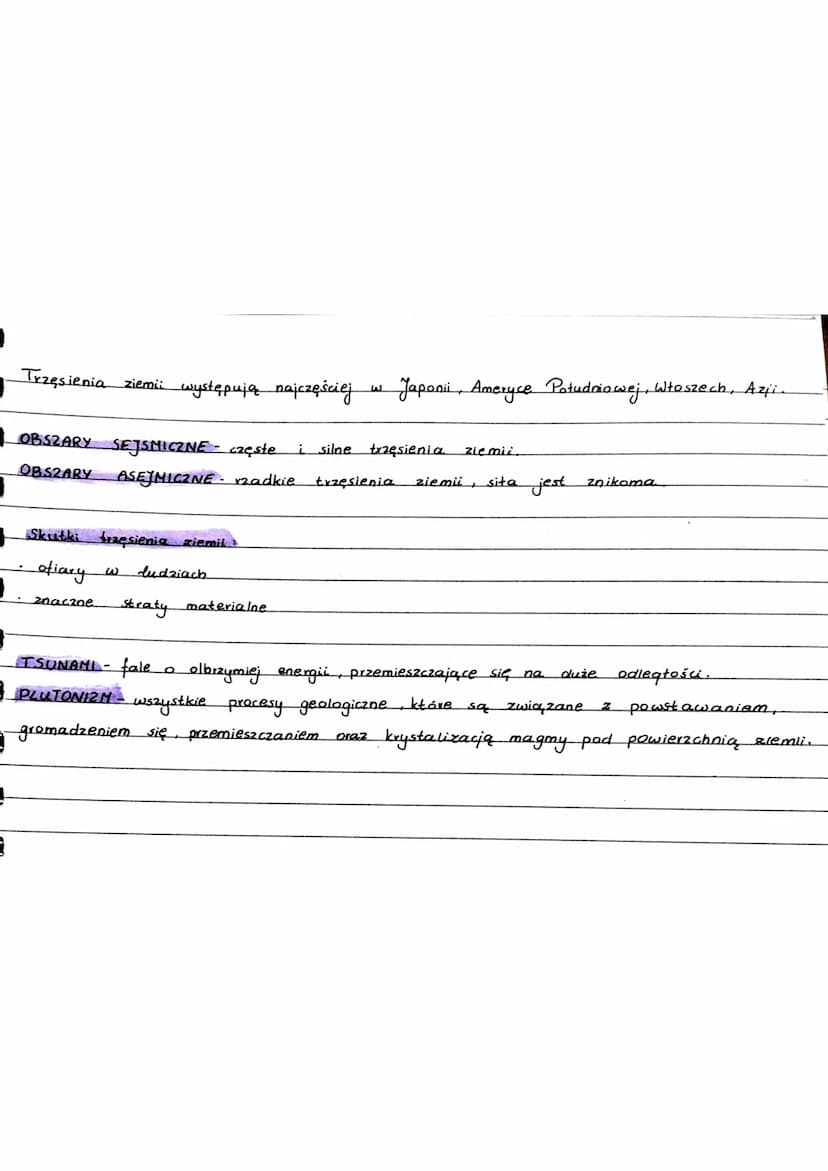 Trzęsienia ziemii występują najczęściej w Japonii, Ameryce Południowej, Włoszech, Azji.
OBSZARY SEJSMICZNE - częste i silne trzęsienia ziemii.
OBSZARY ASEJMICZNE - rzadkie trzęsienia ziemii, siła jest znikoma
Skutki trzęsienia ziemii:
· ofiary w ludziach
· znaczne straty materialne
TSUNAMI - fale o olbrzymiej energii, przemieszczające się na duże odległości.
PLUTONIZM - wszystkie procesy geologiczne, które są związane z powstawaniem,
gromadzeniem się, przemieszczaniem oraz krystalizacją magmy pod powierzchnią ziemii.